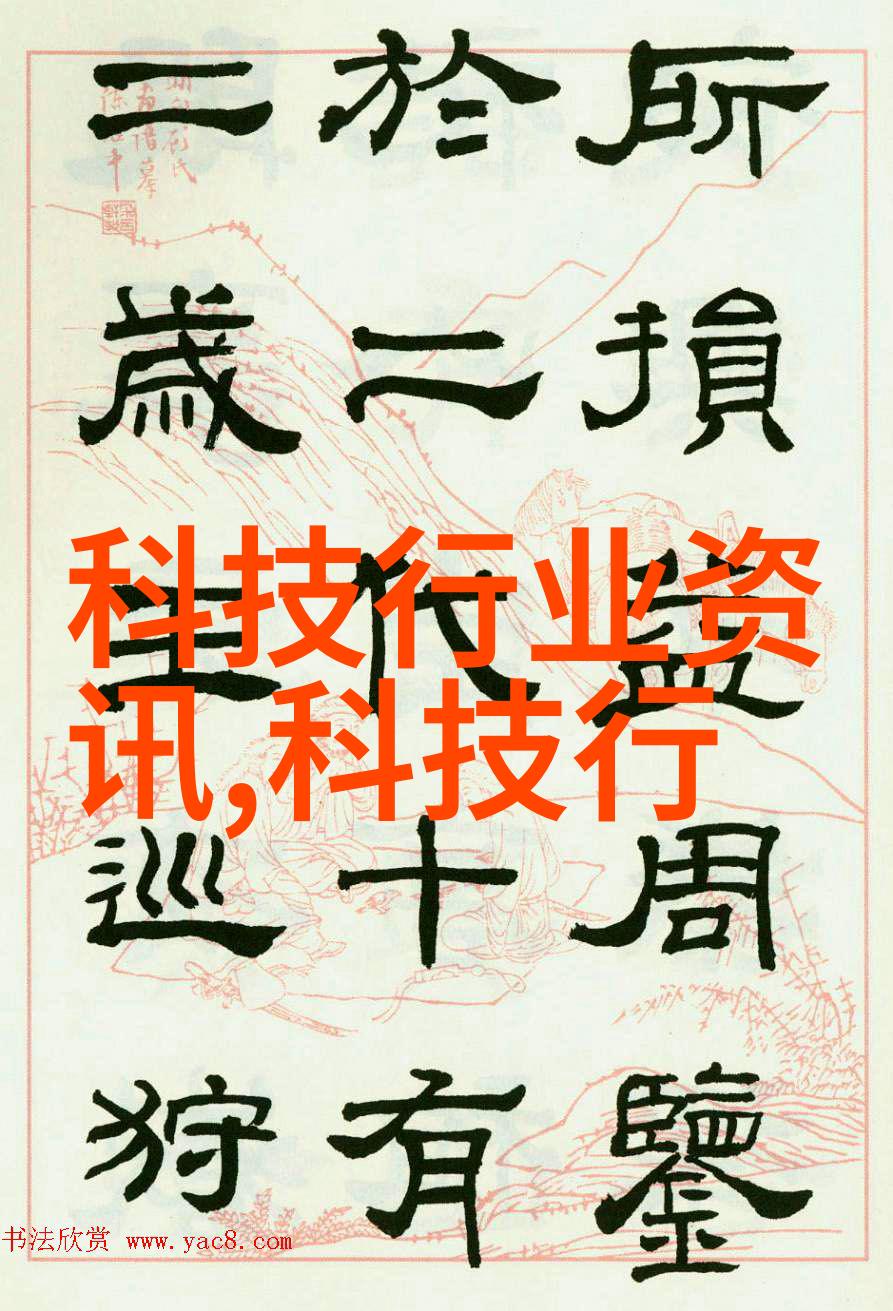 所損益周鑒
於二代十有
二歲王巡狩
科技行业资
讯,科技行
书法欣赏 www.yac8.com